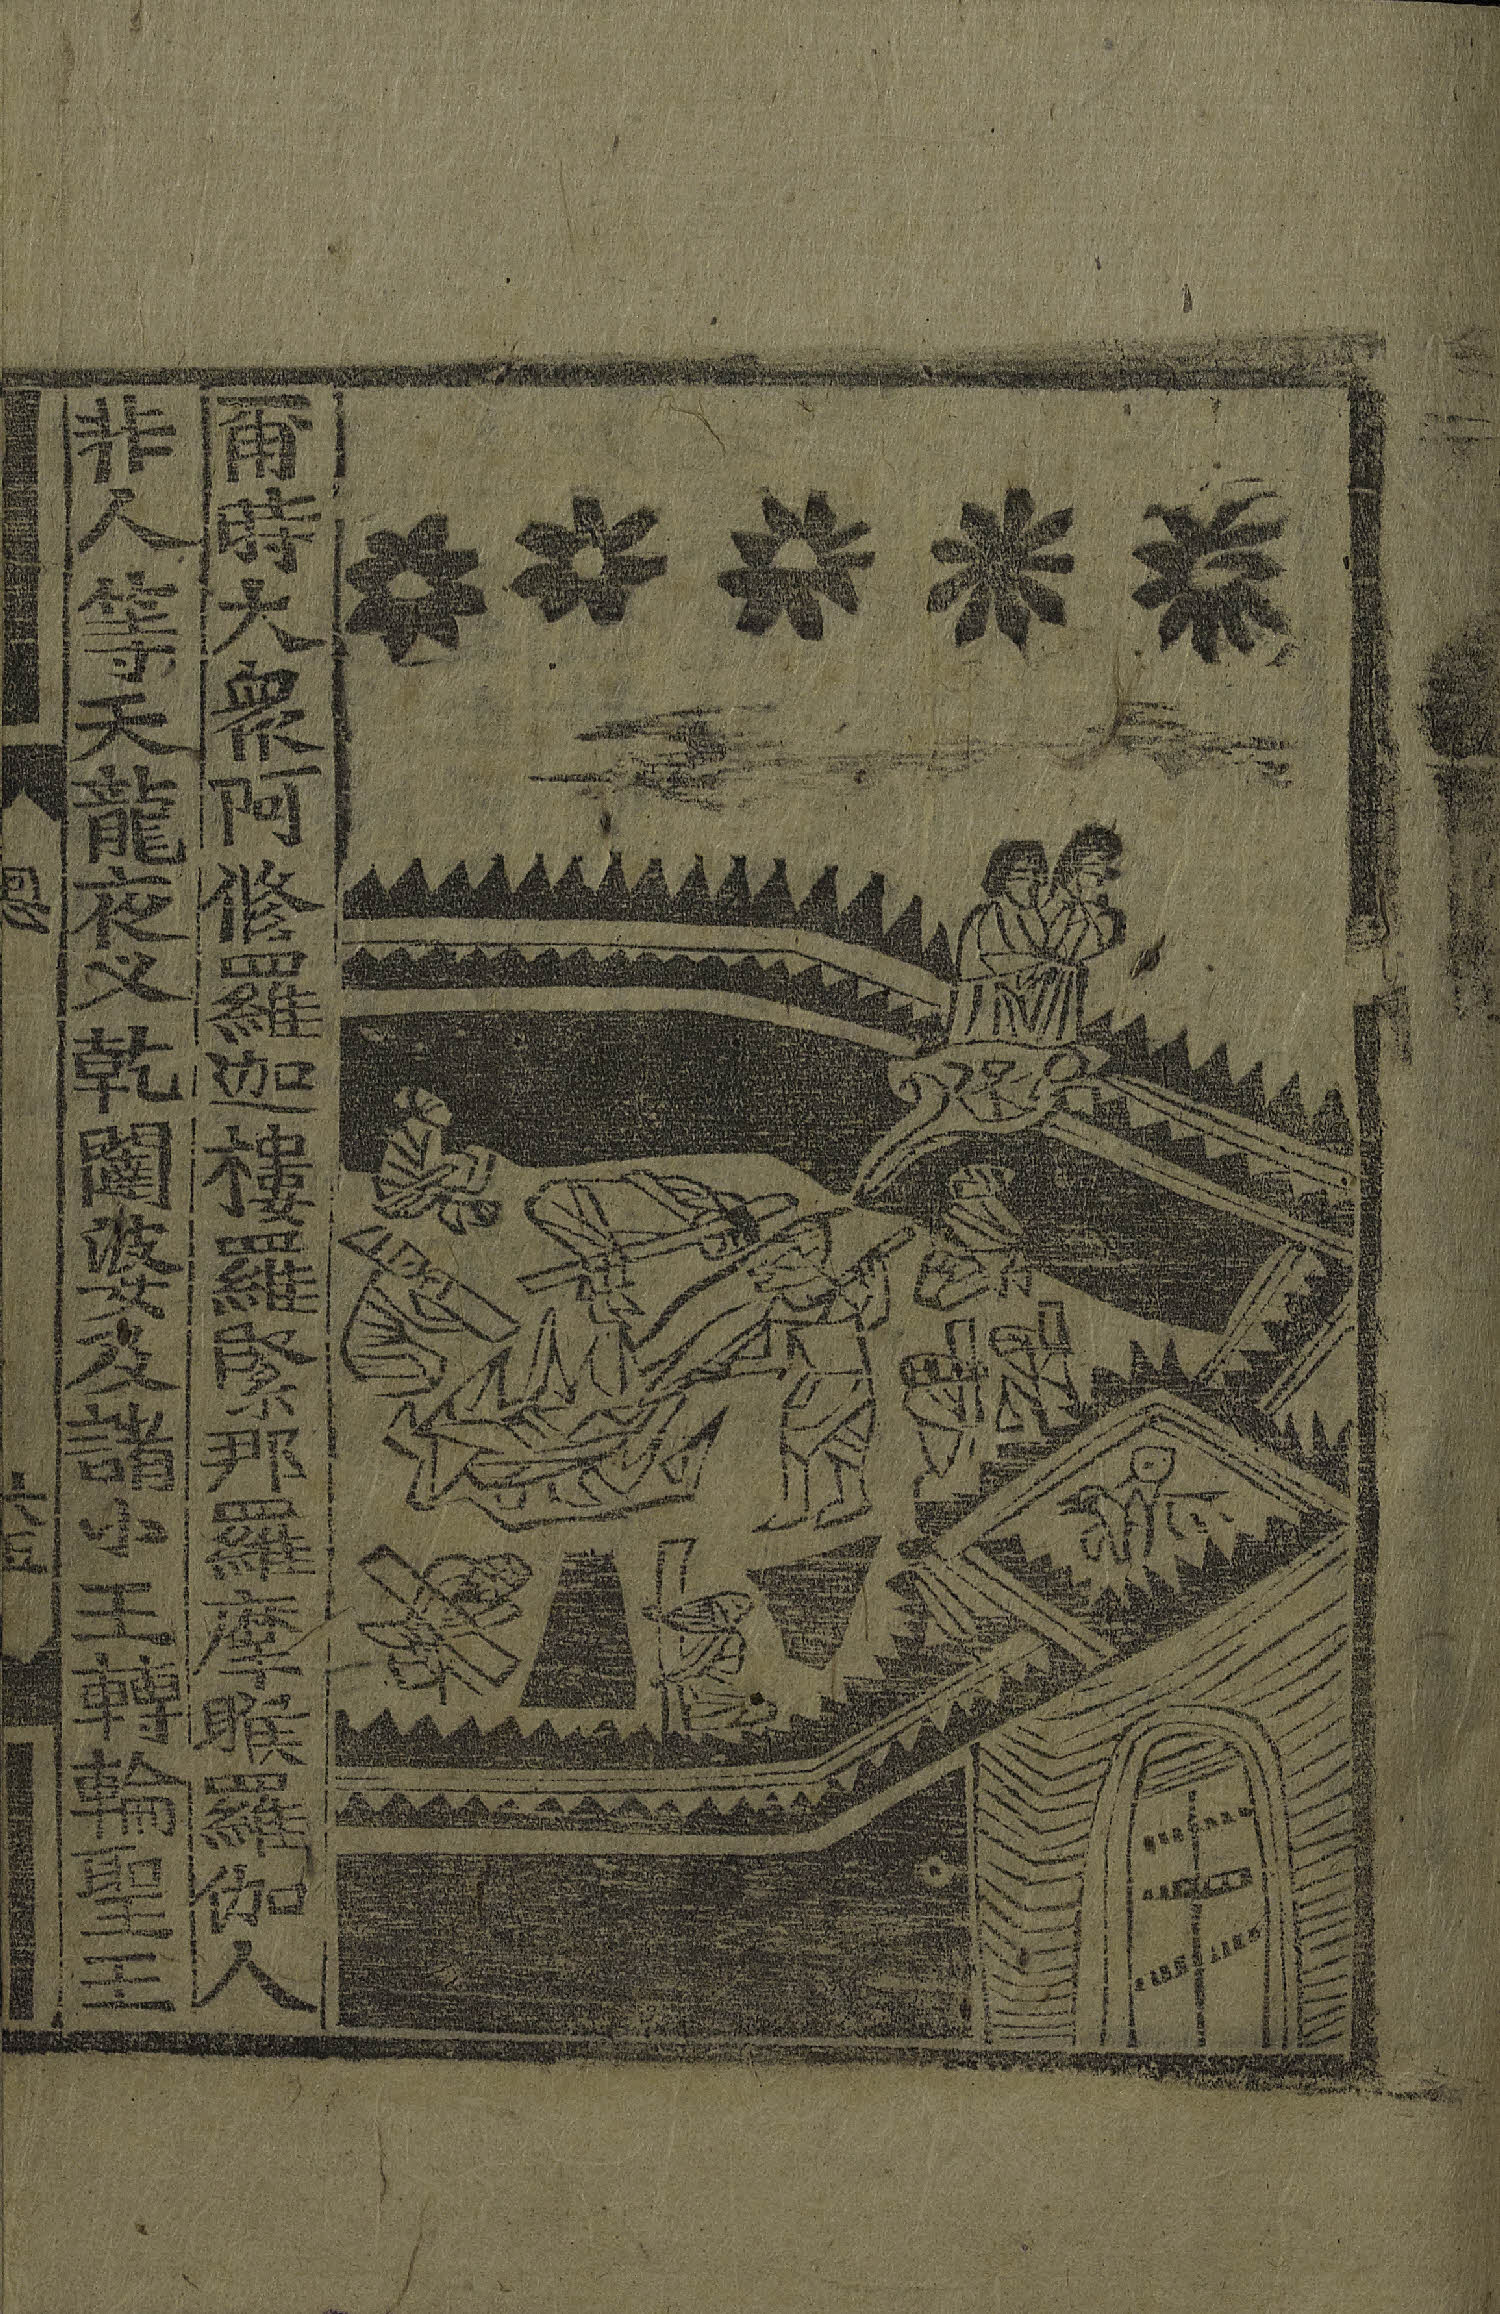 爾時大衆阿修羅迦樓羅緊那羅摩睺羅伽人
非人等天龍夜叉乾闥婆及諸小王轉輪聖王